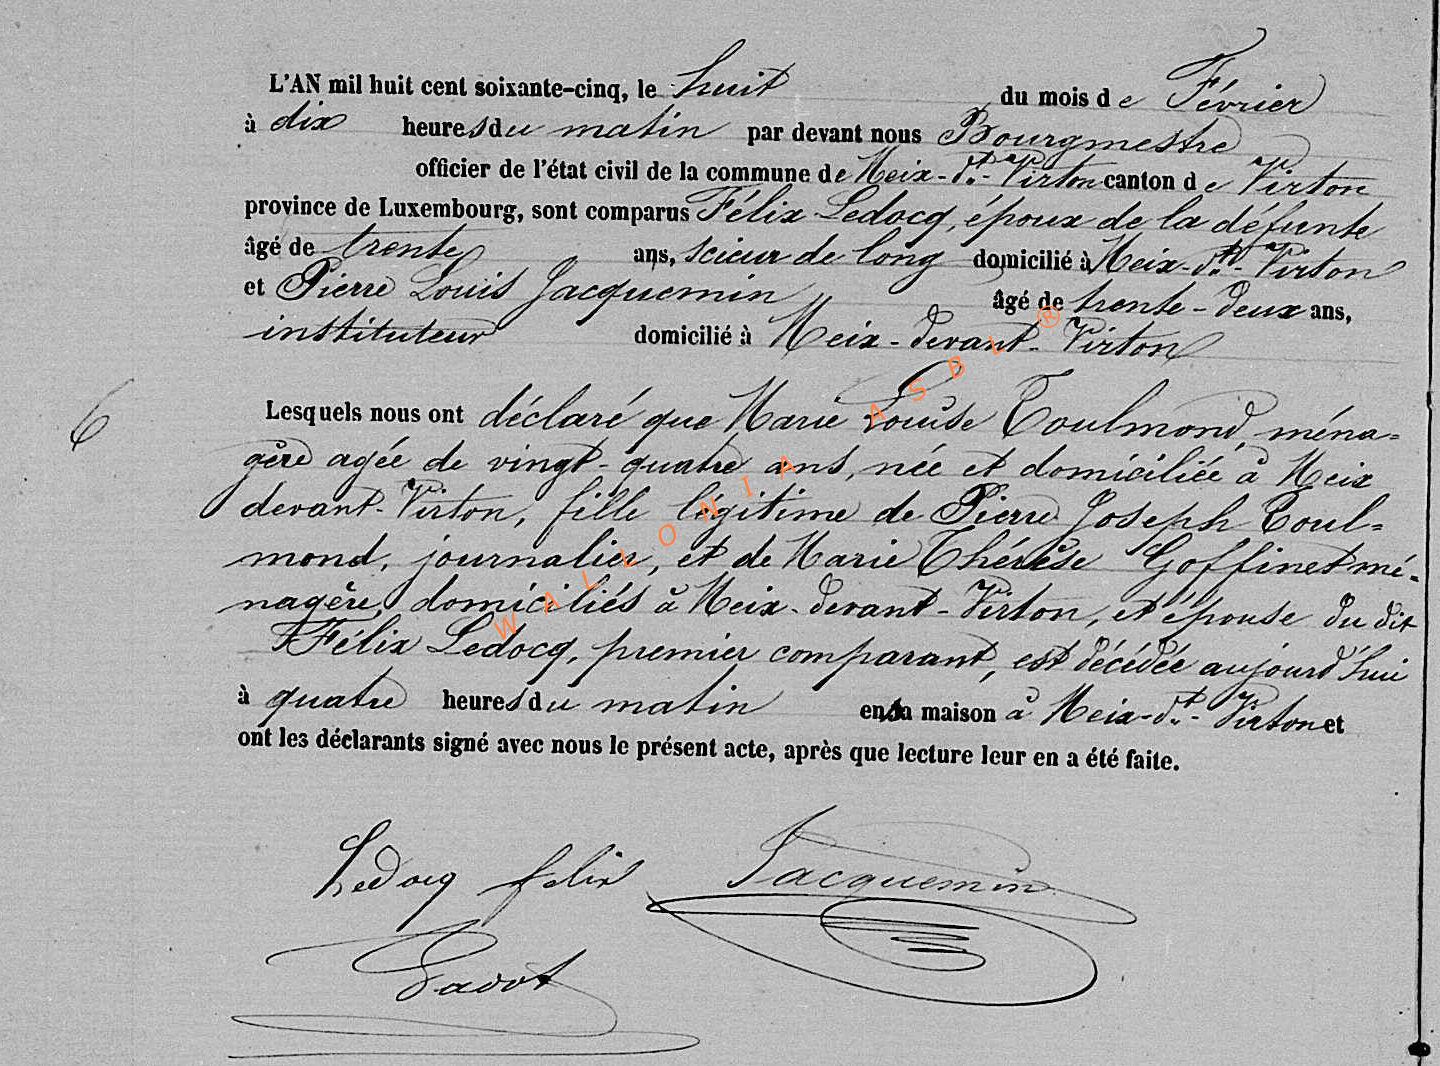 L'AN mil huit cent soixante-cinq, le huit du mois de Février
à dix heures du matin par devant nous Bourgmestre
officier de l'état civil de la commune de Meix-dt-Virton canton de Virton
province de Luxembourg, sont comparus Félix Ledocq, époux de la défunte
âgé de trente ans, scieur de long domicilié à Meix-dt-Virton
et Pierre Louis Jacquemin âgé de trente-deux ans,
instituteur domicilié à Meix-devant-Virton
6
Lesquels nous ont déclaré que Marie Louise Toulmond, ména=
gère agée de vingt-quatre ans, née et domiciliée à Meix
devant-Virton, fille légitime de Pierre Joseph Toul=
mond, journalier, et de Marie Thérèse Goffinet mé-
nagère, domiciliés à Meix-devant-Virton, et épouse du dit
Félix Ledocq, premier comparant, est décédée aujourd'hui
à quatre heures du matin en sa maison à Meix-dt-Virton et
ont les déclarants signé avec nous le présent acte, après que lecture leur en a été faite.
Ledocq felix Jacquemin
WALLONIA ASBL ®